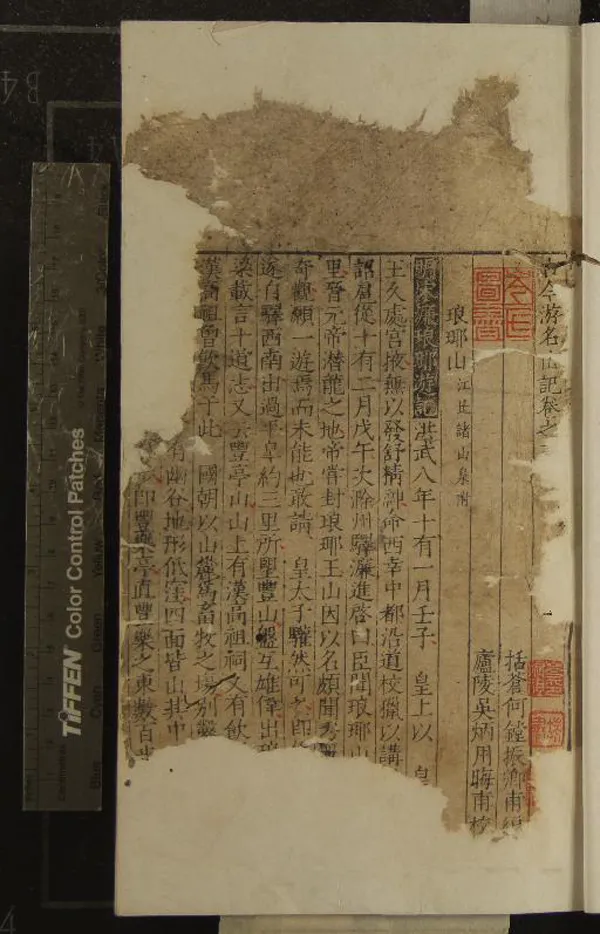 今游名山記卷之
括蒼何鏜振卿甫編
廬陵吳炳用晦甫校
琅琊山 江北諸山泉附
明宋濂琅琊游記 洪武八年十有一月壬子 皇上以 皇
王久處宮掖無以發舒精神命西幸中都沿道校獵以講
詔扈從十有二月戊午次滁州驛濂進啓曰臣聞琅琊山
里晉元帝潛龍之地帝嘗封琅琊王山因以名頗聞秀麗
奇觀願一遊焉而未能也敢請 皇太子驩然可之即
遂自驛西南出過平皋約三里所望豐山盤互雄偉出琅
梁載言十道志又云豐亭山山上有漢高祖祠又有飲
漢高祖曾飲馬于此 國朝以山麓爲畜牧之場別鑿
有幽谷地形低窪四面皆山其中
即豐樂亭直豐樂之東數百步
TIFFEN Color Control Patches